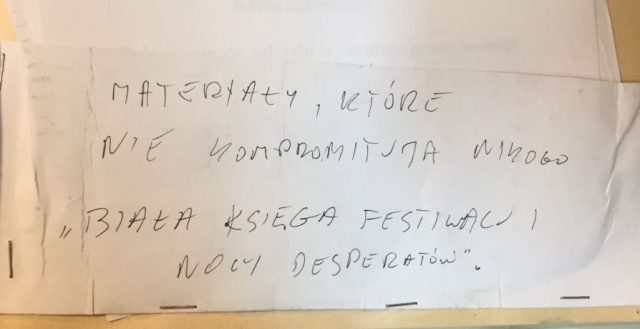 MATERYAŁY, KTÓRE
NIE KOMPROMITUJA NIKOGO
„BIAŁA KSIĘGA FESTIWALU I
NOCY DESPERATÓW".